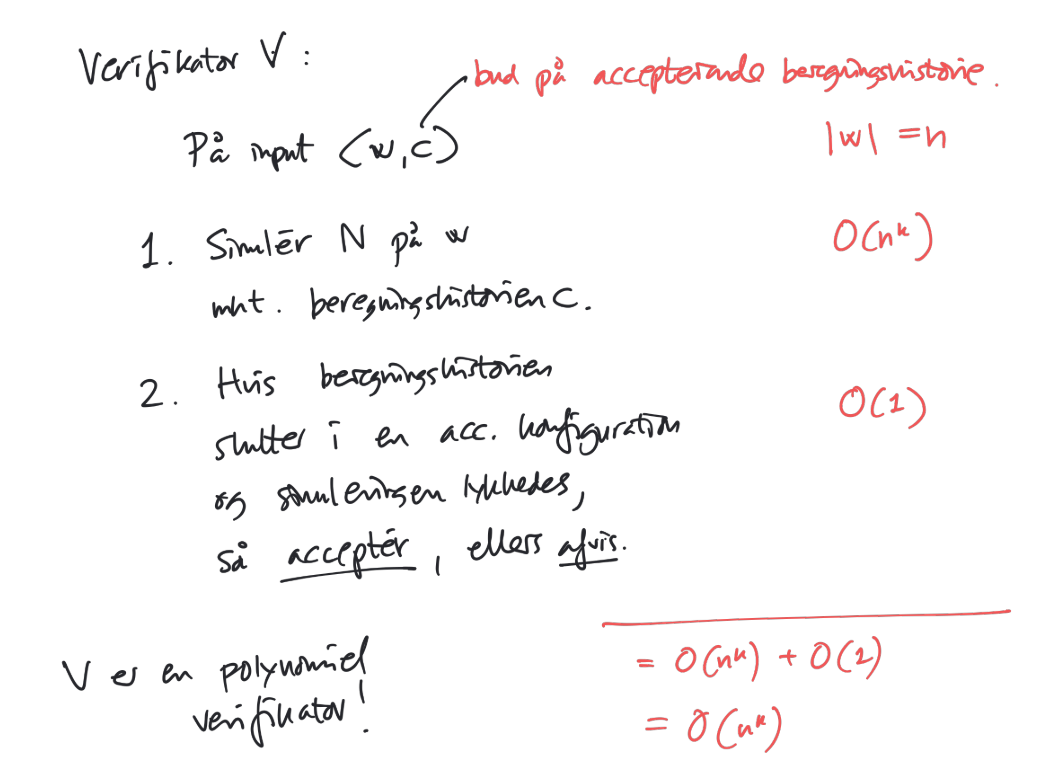 Verifikator V :
bud på accepterende beregningshistorie.
På input ⟨w, c⟩
|w| = n
1. Simulér N på w
O(n^k)
mht. beregningshistorien C.
2. Hvis beregningshistorien
O(1)
slutter i en acc. konfiguration
og simuleringen lykkedes,
så accептér, ellers afvis.
= O(n^k) + O(1)
V er en polynomiel
verifikator!
= O(n^k)